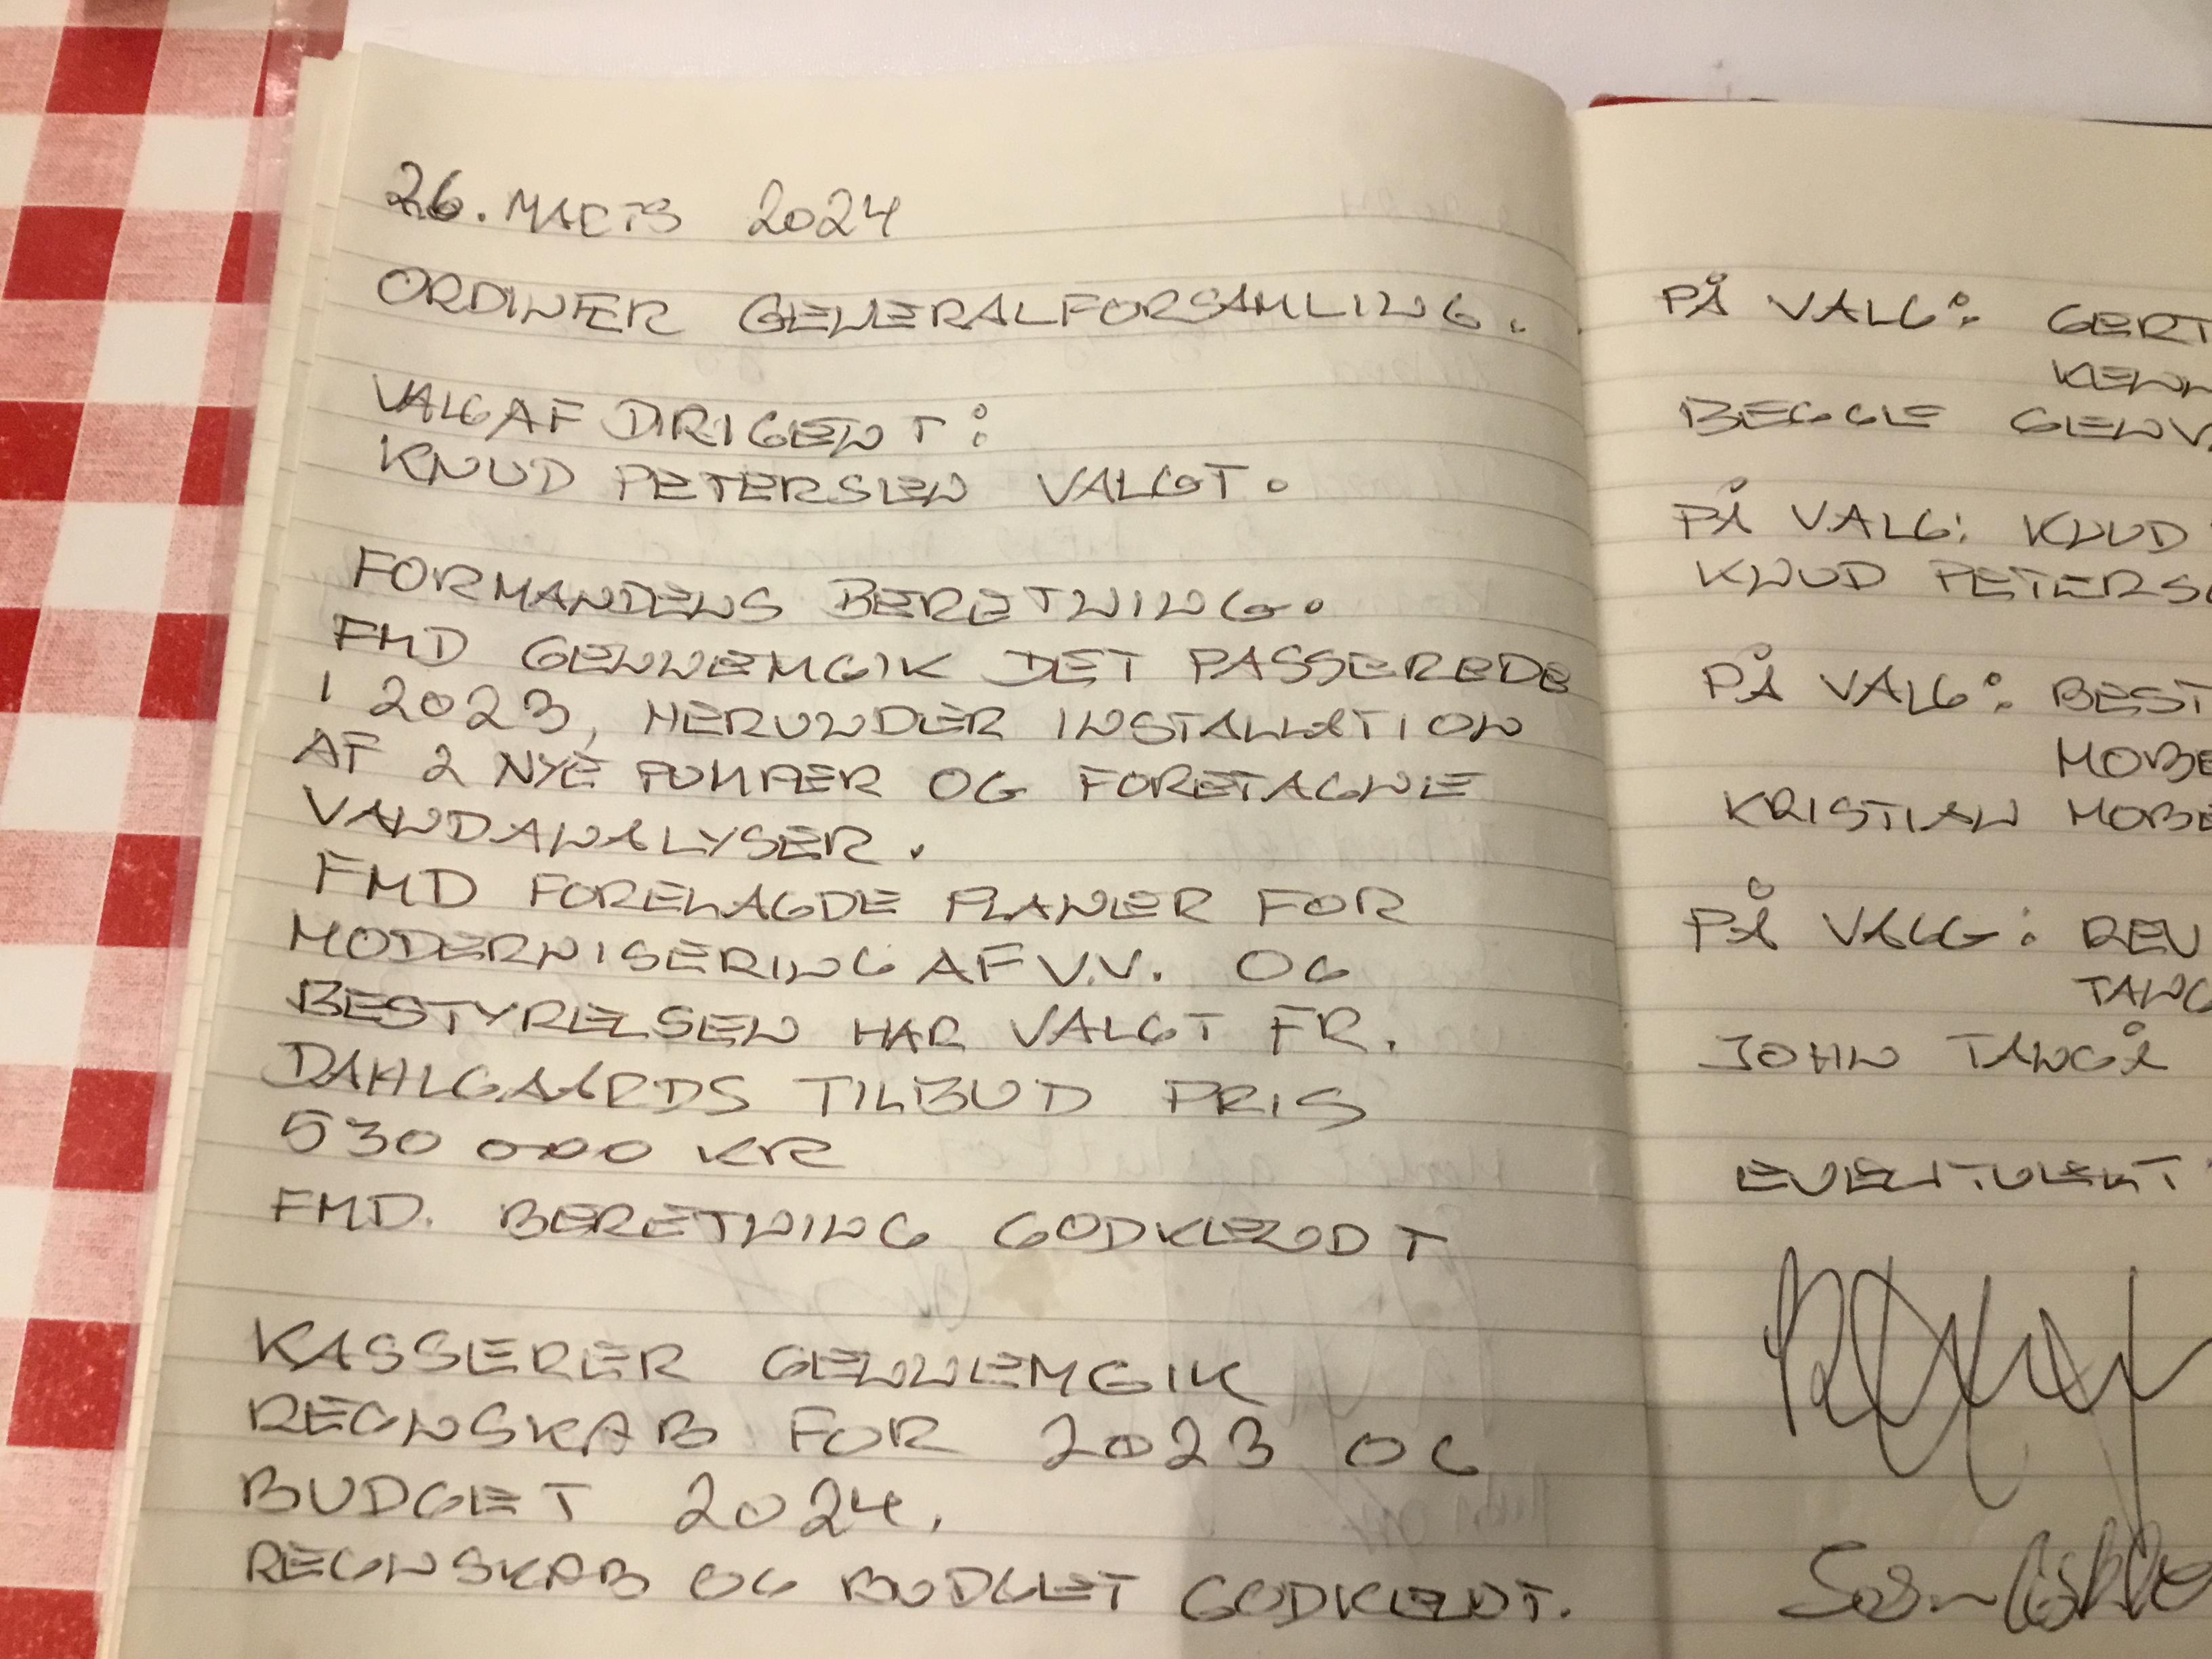 26. MARTS 2024
ORDINÆR GENERALFORSAMLING.
VALG AF DIRIGENT:
KNUD PETERSEN VALGT.
FORMANDENS BERETNING.
FMD GENNEMGIK DET PASSEREDE
I 2023, HERUNDER INSTALLATION
AF 2 NYE PUMPER OG FORETAGNE
VANDANALYSER.
FMD FORELAGDE PLANER FOR
MODERNISERING AF V.V. OG
BESTYRELSEN HAR VALGT FR.
DAHLGAARDS TILBUD PRIS
530 000 KR
FMD. BERETNING GODKENDT
KASSERER GENNEMGIK
REGNSKAB FOR 2023 OG
BUDGET 2024.
REGNSKAB OG BUDGET GODKENDT.
PÅ VALG: GERT
KENN
BEGGE GENV
PÅ VALG: KNUD
KNUD PETERS
PÅ VALG: BEST
MOBE
KRISTIAN MOBE
PÅ VALG: REV
TANG
JOHN TANGÅ
EVENTUELT